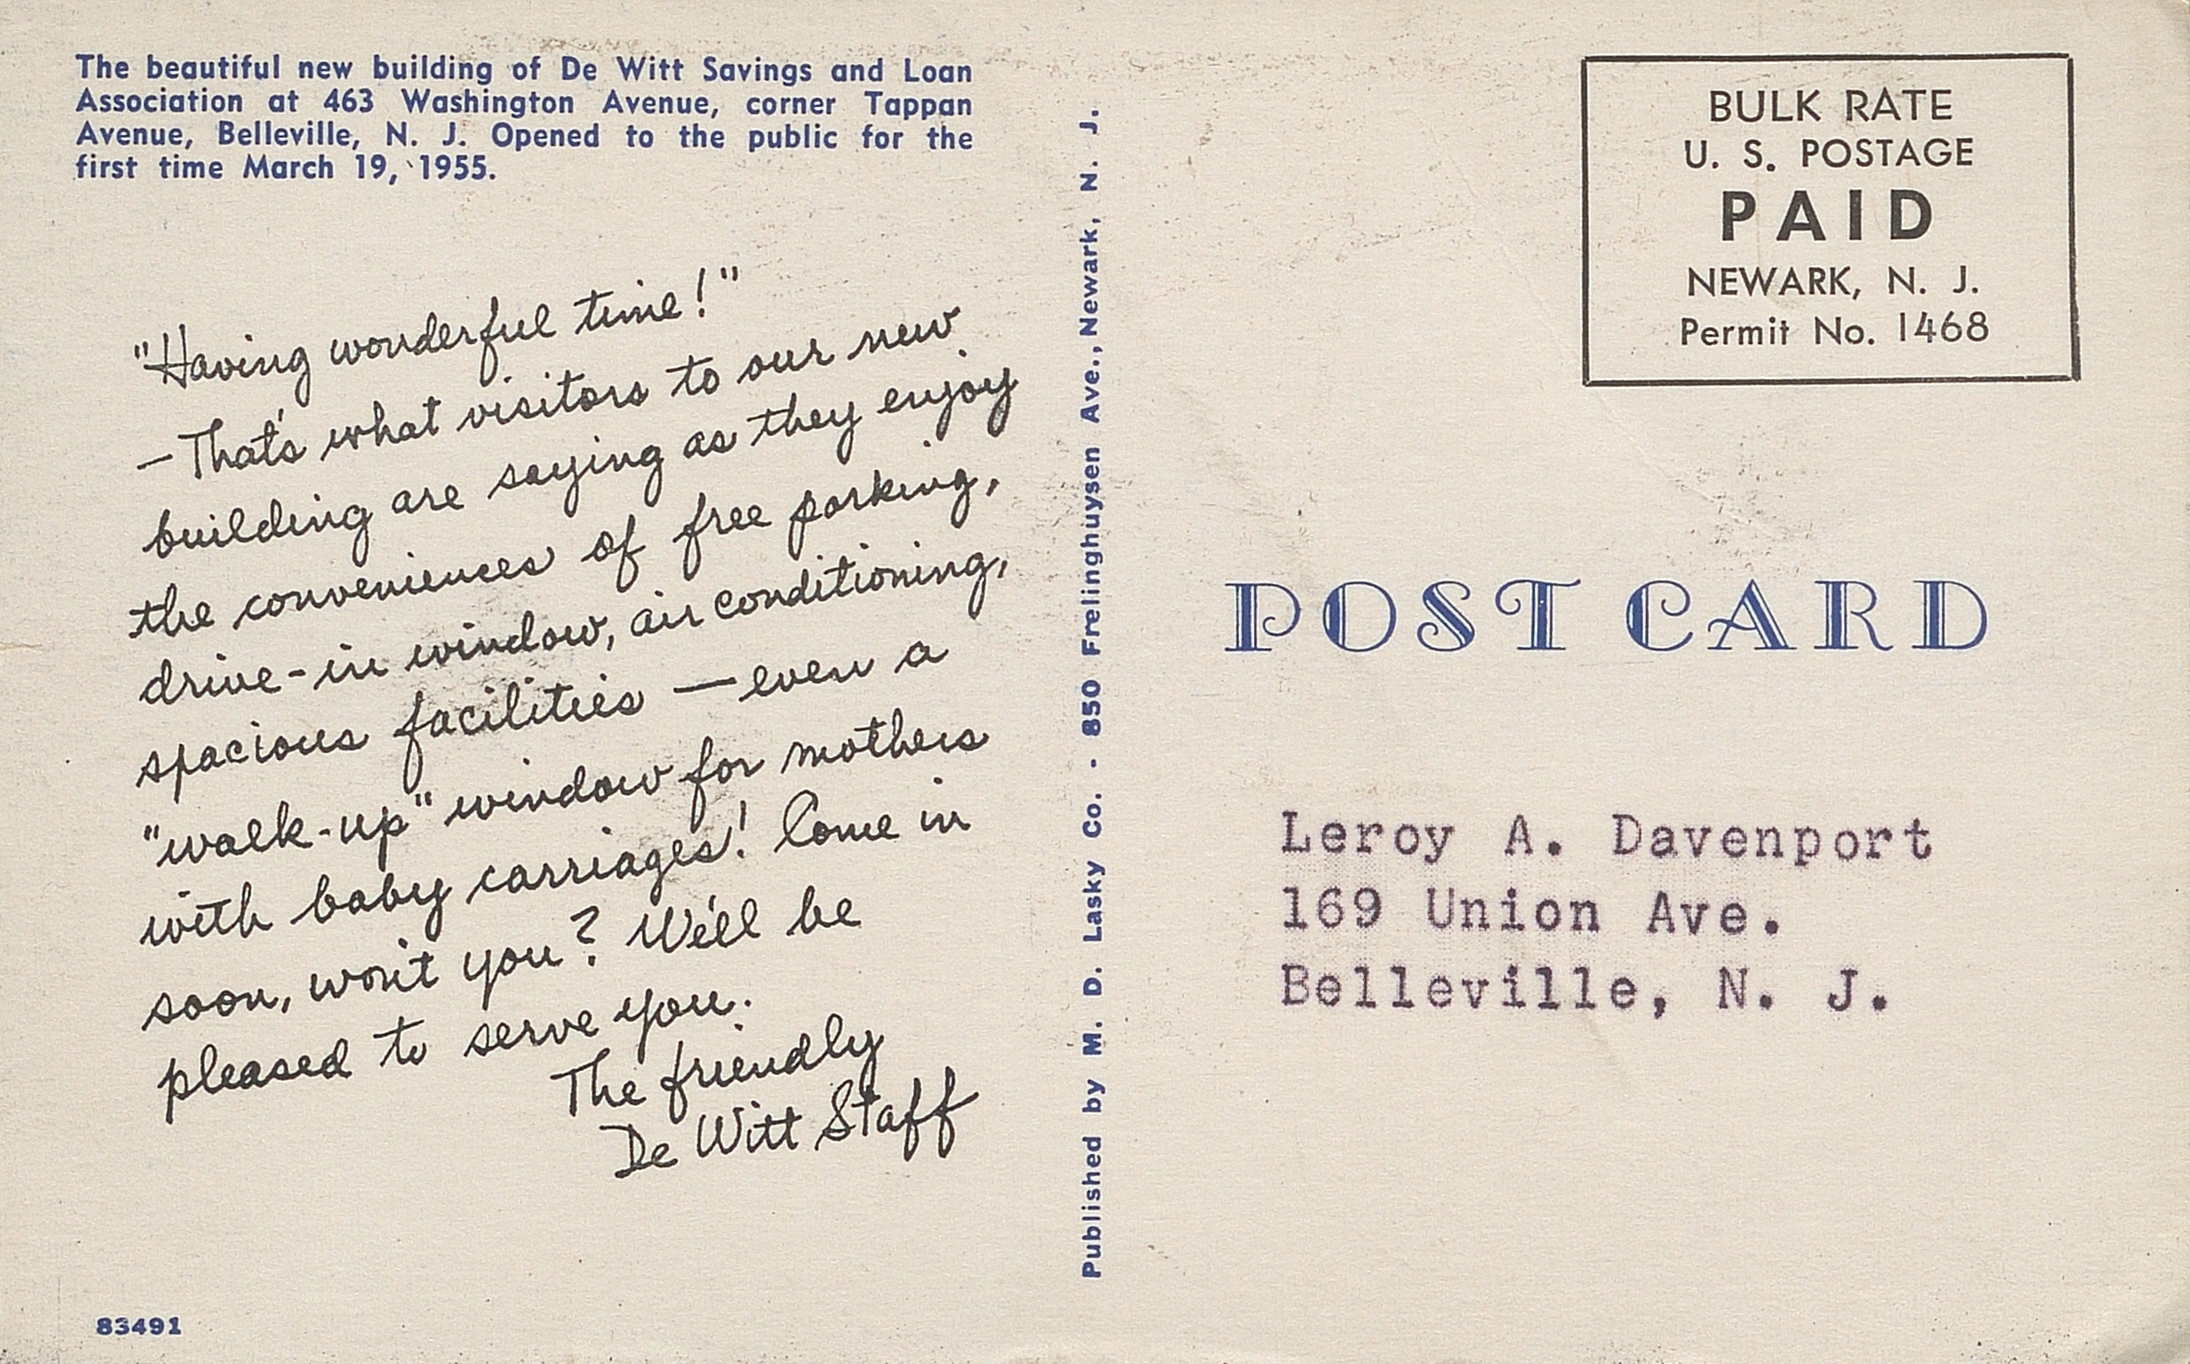 The beautiful new building of De Witt Savings and Loan
Association at 463 Washington Avenue, corner Tappan
Avenue, Belleville, N. J. Opened to the public for the
first time March 19, 1955.
"Having wonderful time!"
—That's what visitors to our new
building are saying as they enjoy
the conveniences of free parking,
drive-in window, air conditioning,
spacious facilities — even a
"walk-up" window for mothers
with baby carriages! Come in
soon, won't you? We'll be
pleased to serve you.
The friendly
De Witt Staff
83491
Published by M. D. Lasky Co. - 850 Frelinghuysen Ave., Newark, N. J.
BULK RATE
U. S. POSTAGE
PAID
NEWARK, N. J.
Permit No. 1468
POST CARD
Leroy A. Davenport
169 Union Ave.
Belleville, N. J.